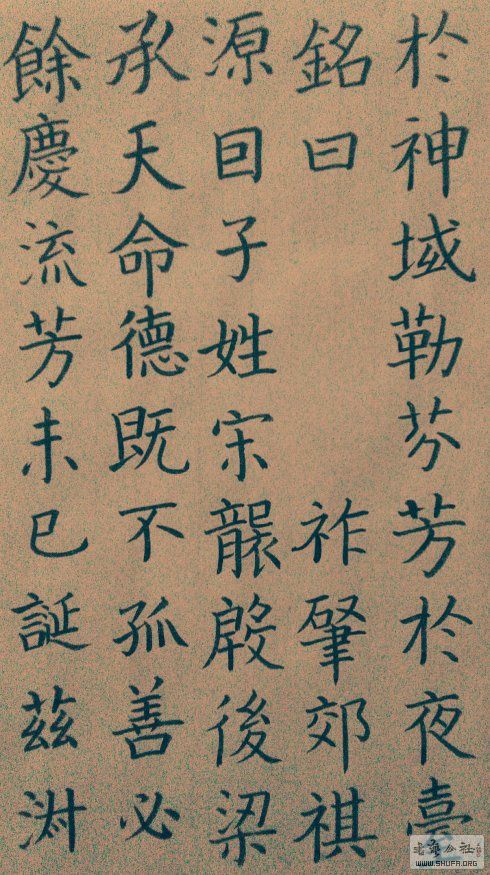 於神域勒芬芳於夜臺
銘曰 祚肇郊祺
源囙子姓宋襲殷後梁
承天命德既不孤善必
餘慶流芳未已誕茲
WWW.SHUFA.ORG